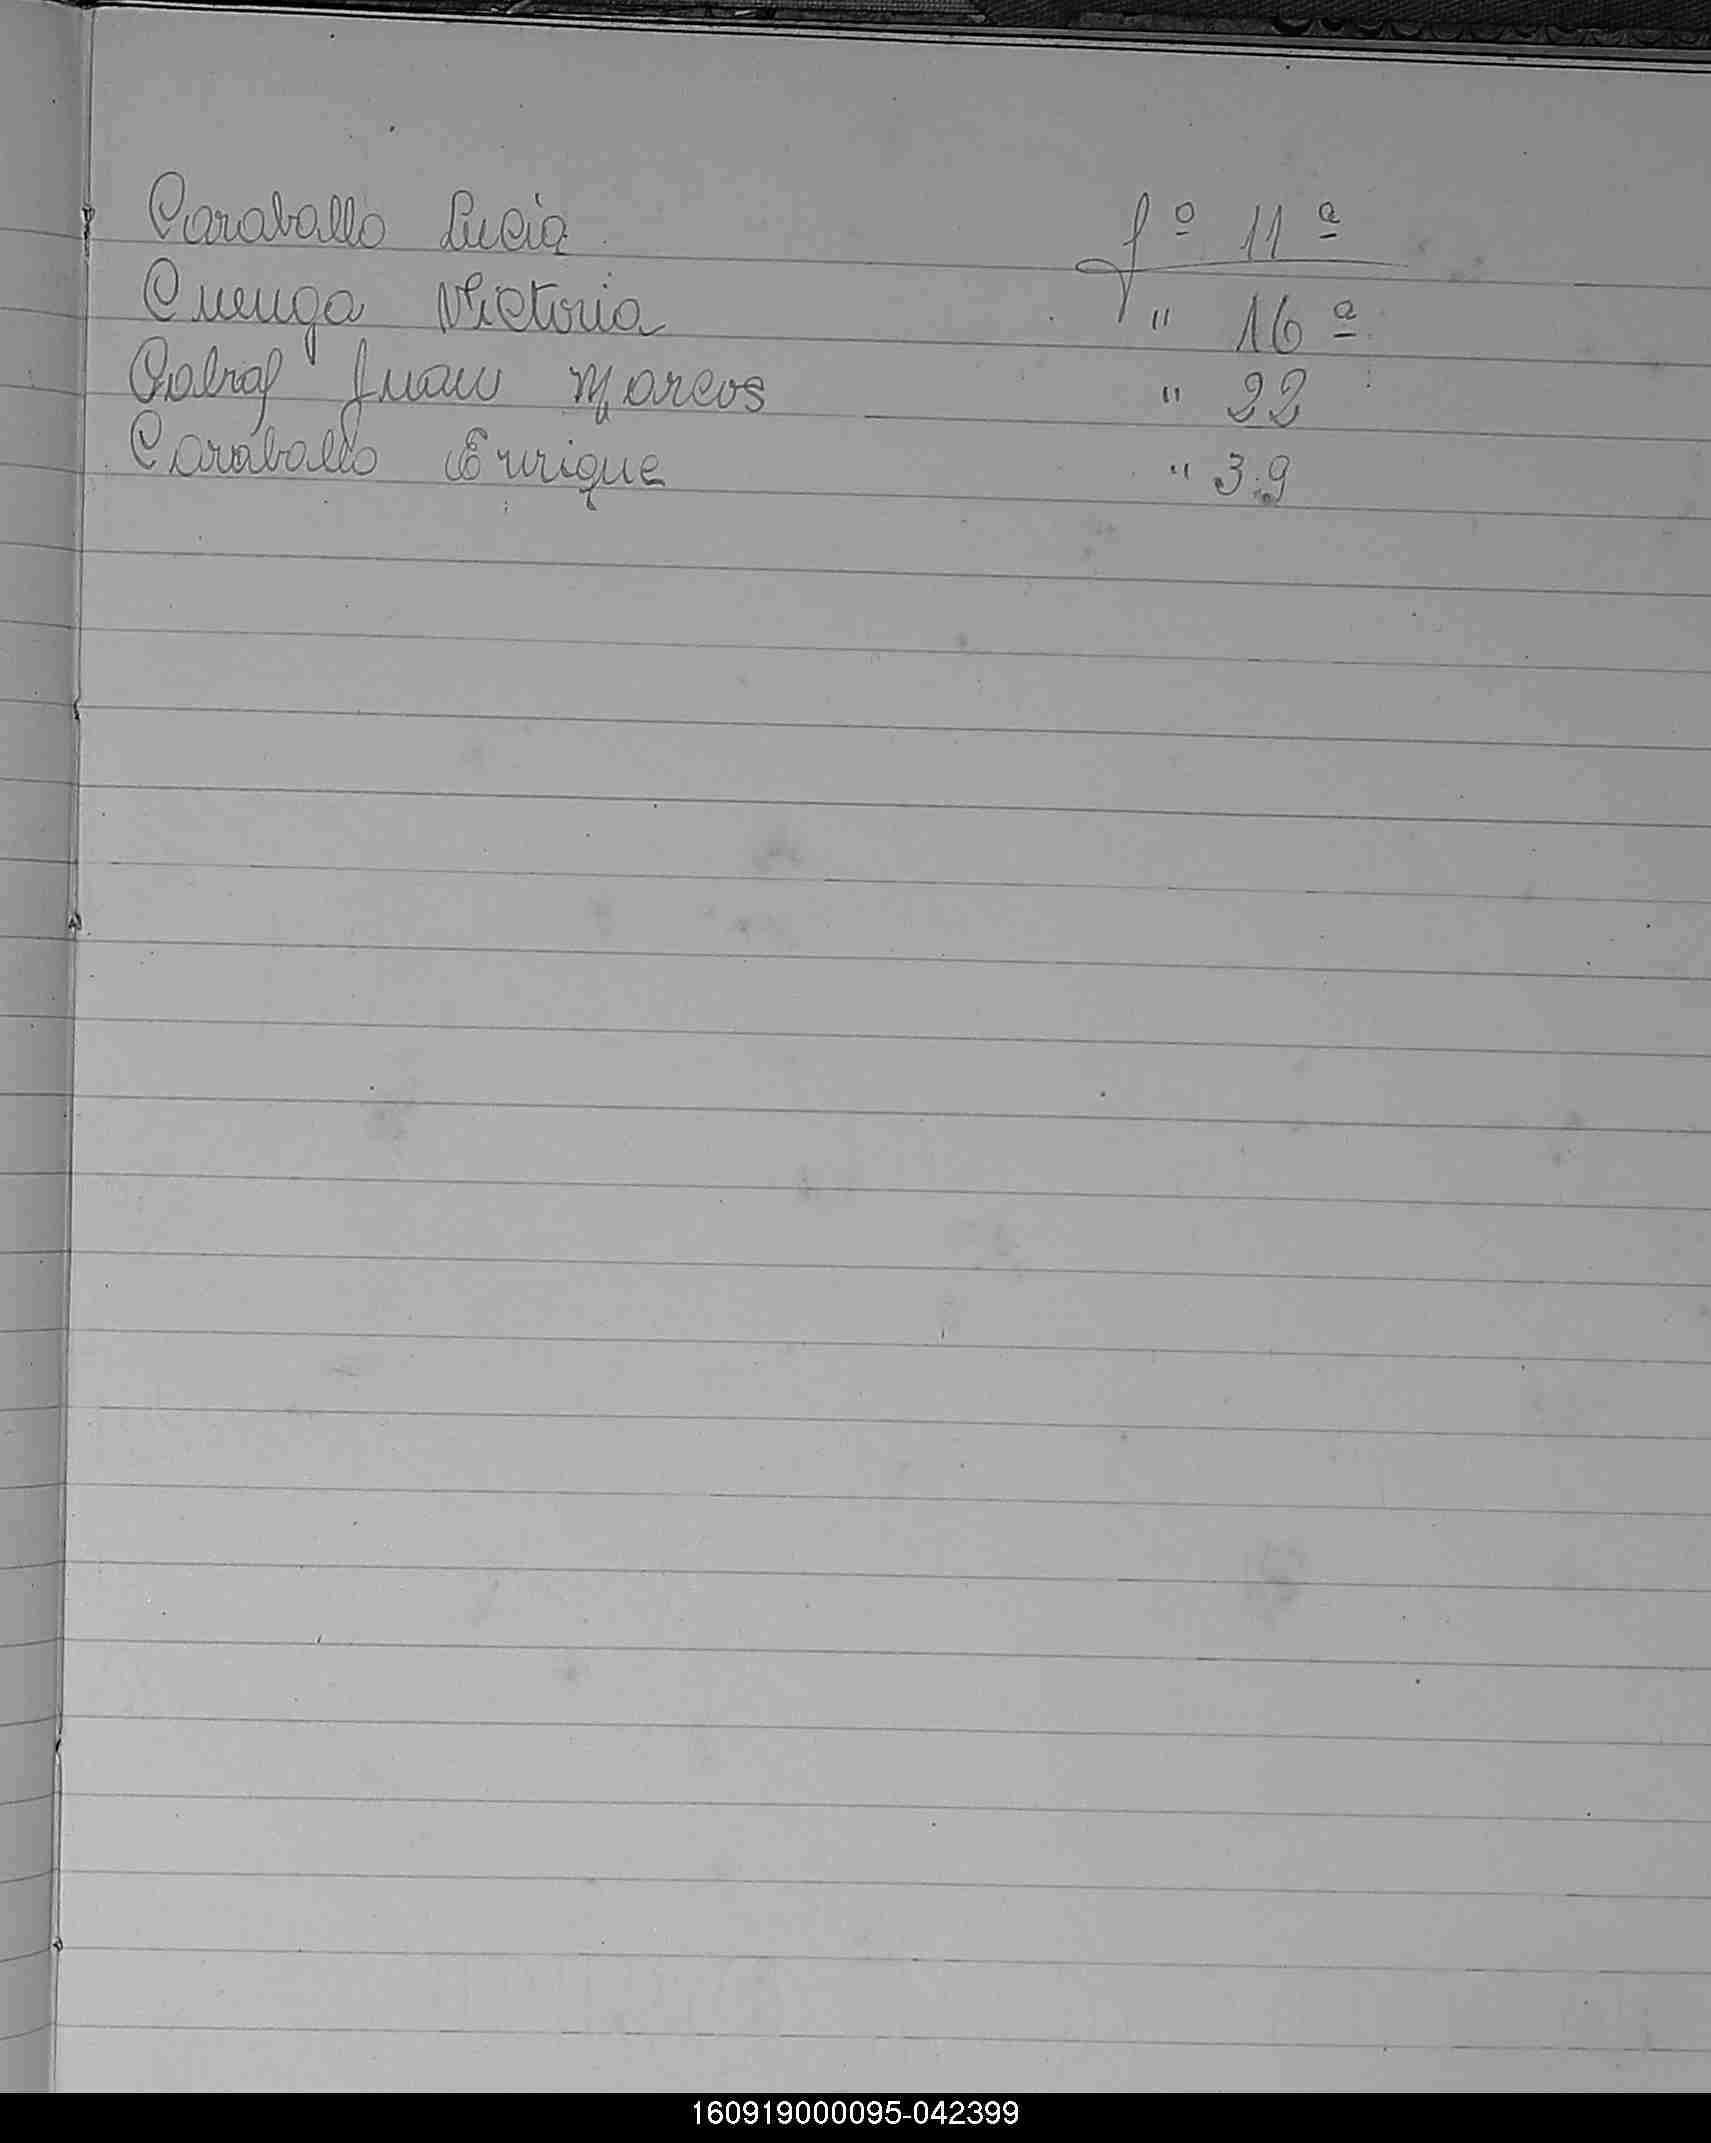 Caraballo Lucia fº 11ª
Cuenga Victoria " 16ª
Cabral Juan Marcos " 22
Caraballo Enrique " 39
160919000095-042399